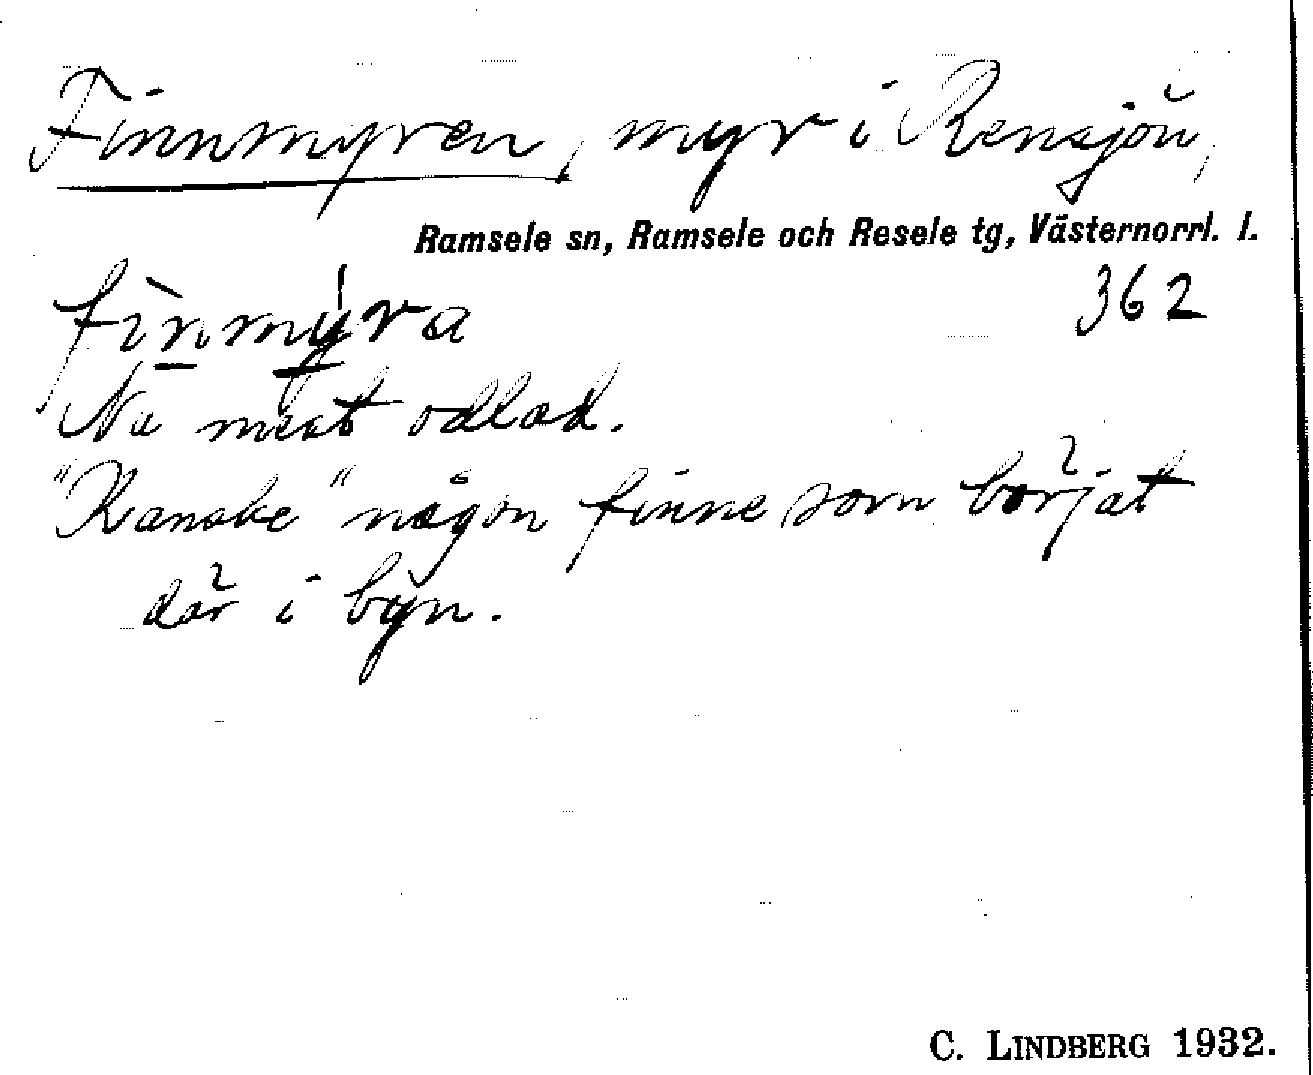 Finnmyren, myr i Rensjön,
Ramsele sn, Ramsele och Resele tg, Västernorrl. l.
fìnmy̍ra
362
Nu mest odlad.
"Kanske" någon finne som börjat
där i byn.
C. LINDBERG 1932.